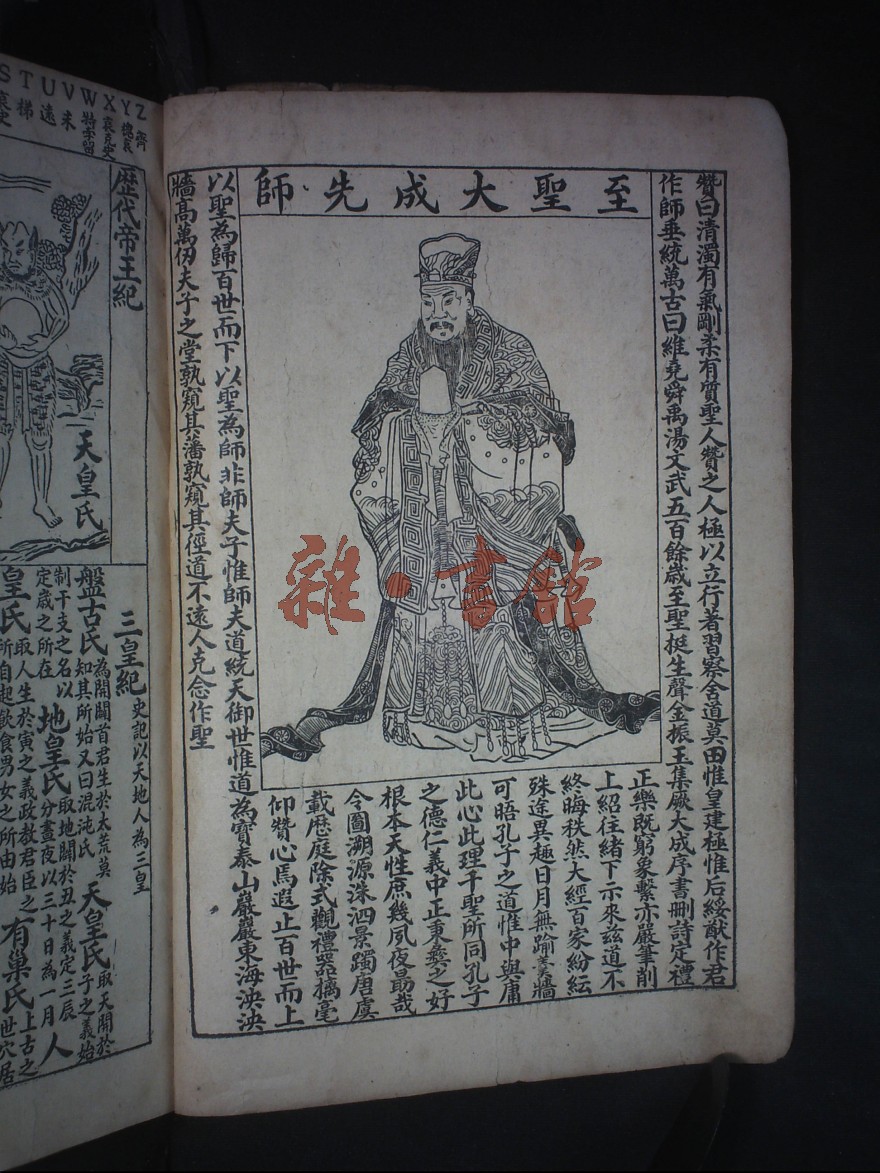 至聖大成先師
贊曰清濁有氣剛柔有質聖人贊之人極以立行著習察舍道莫由惟皇建極惟后綏猷作君
作師垂統萬古曰維堯舜禹湯文武五百餘歲至聖挺生聲金振玉集厥大成序書刪詩定禮
正樂既窮象繫亦嚴筆削
上紹往緒下示來茲道不
終晦秩然大經百家紛紜
殊途異趣日月無踰羹牆
可晤孔子之道惟中與庸
此心此理千聖所同孔子
之德仁義中正秉彝之好
根本天性庶幾夙夜勗哉
令圖溯源洙泗景躅唐虞
載歷庭除式觀禮器摛毫
仰贊心焉遐止百世而上
以聖為歸百世而下以聖為師非師夫子惟師夫道統天御世惟道為寶泰山巖巖東海泱泱
牆高萬仞夫子之堂孰窺其藩孰窺其徑道不遠人克念作聖
雜·書館
S T U V W X Y Z
梯 遙 未 袁克史 齊
歷代帝王紀
天皇氏
三皇紀 史記以天地人為三皇
盤古氏 為開闢首君生於太荒莫
知其所始又曰混沌氏
天皇氏 取天開於
子之義始
制干支之名以
定歲之所在
地皇氏 取地闢於丑之義定三辰
分晝夜以三十日為一月
人
皇氏 取人生於寅之義政教君臣之
所自起飲食男女之所由始
有巢氏 上古之
世穴居